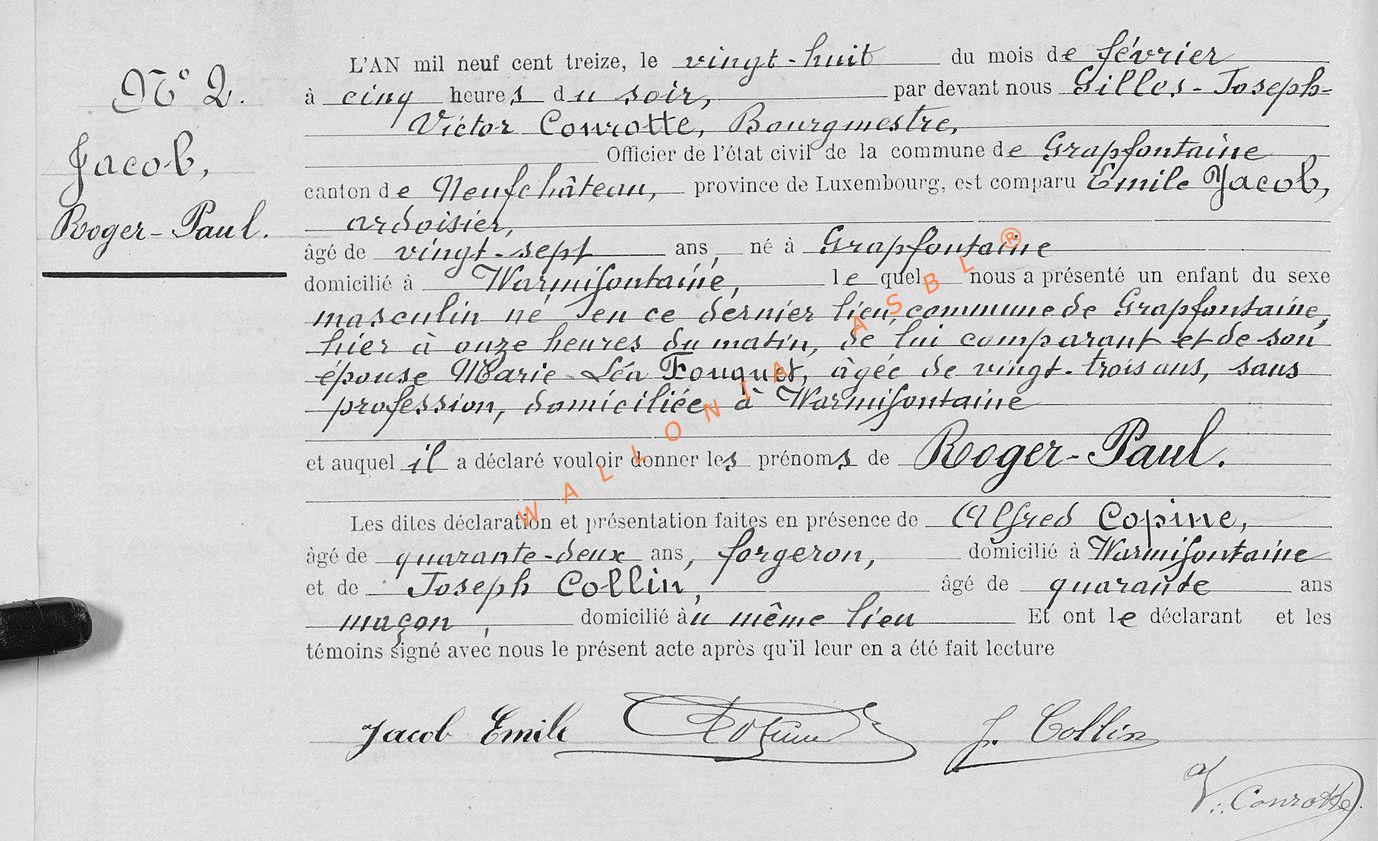 N° 2.
Jacob,
Roger-Paul.
L'AN mil neuf cent treize, le vingt-huit du mois de février
à cinq heures du soir, par devant nous Gilles-Joseph-
Victor Conrotte, Bourgmestre,
Officier de l'état civil de la commune de Grapfontaine
canton de Neufchâteau, province de Luxembourg, est comparu Emile Jacob,
ardoisier,
âgé de vingt-sept ans, né à Grapfontaine
domicilié à Warmifontaine, lequel nous a présenté un enfant du sexe
masculin né en ce dernier lieu, commune de Grapfontaine,
hier à onze heures du matin, de lui comparant et de son
épouse Marie-Léa Fouquet, âgée de vingt-trois ans, sans
profession, domiciliée à Warmifontaine
et auquel il a déclaré vouloir donner les prénoms de Roger-Paul.
Les dites déclaration et présentation faites en présence de Alfred Copine,
âgé de quarante-deux ans, forgeron, domicilié à Warmifontaine
et de Joseph Collin, âgé de quarante ans
maçon, domicilié au même lieu Et ont le déclarant et les
témoins signé avec nous le présent acte après qu'il leur en a été fait lecture
Jacob Emile J. Collin
V. Conrotte
WALLONIA ASBL ®